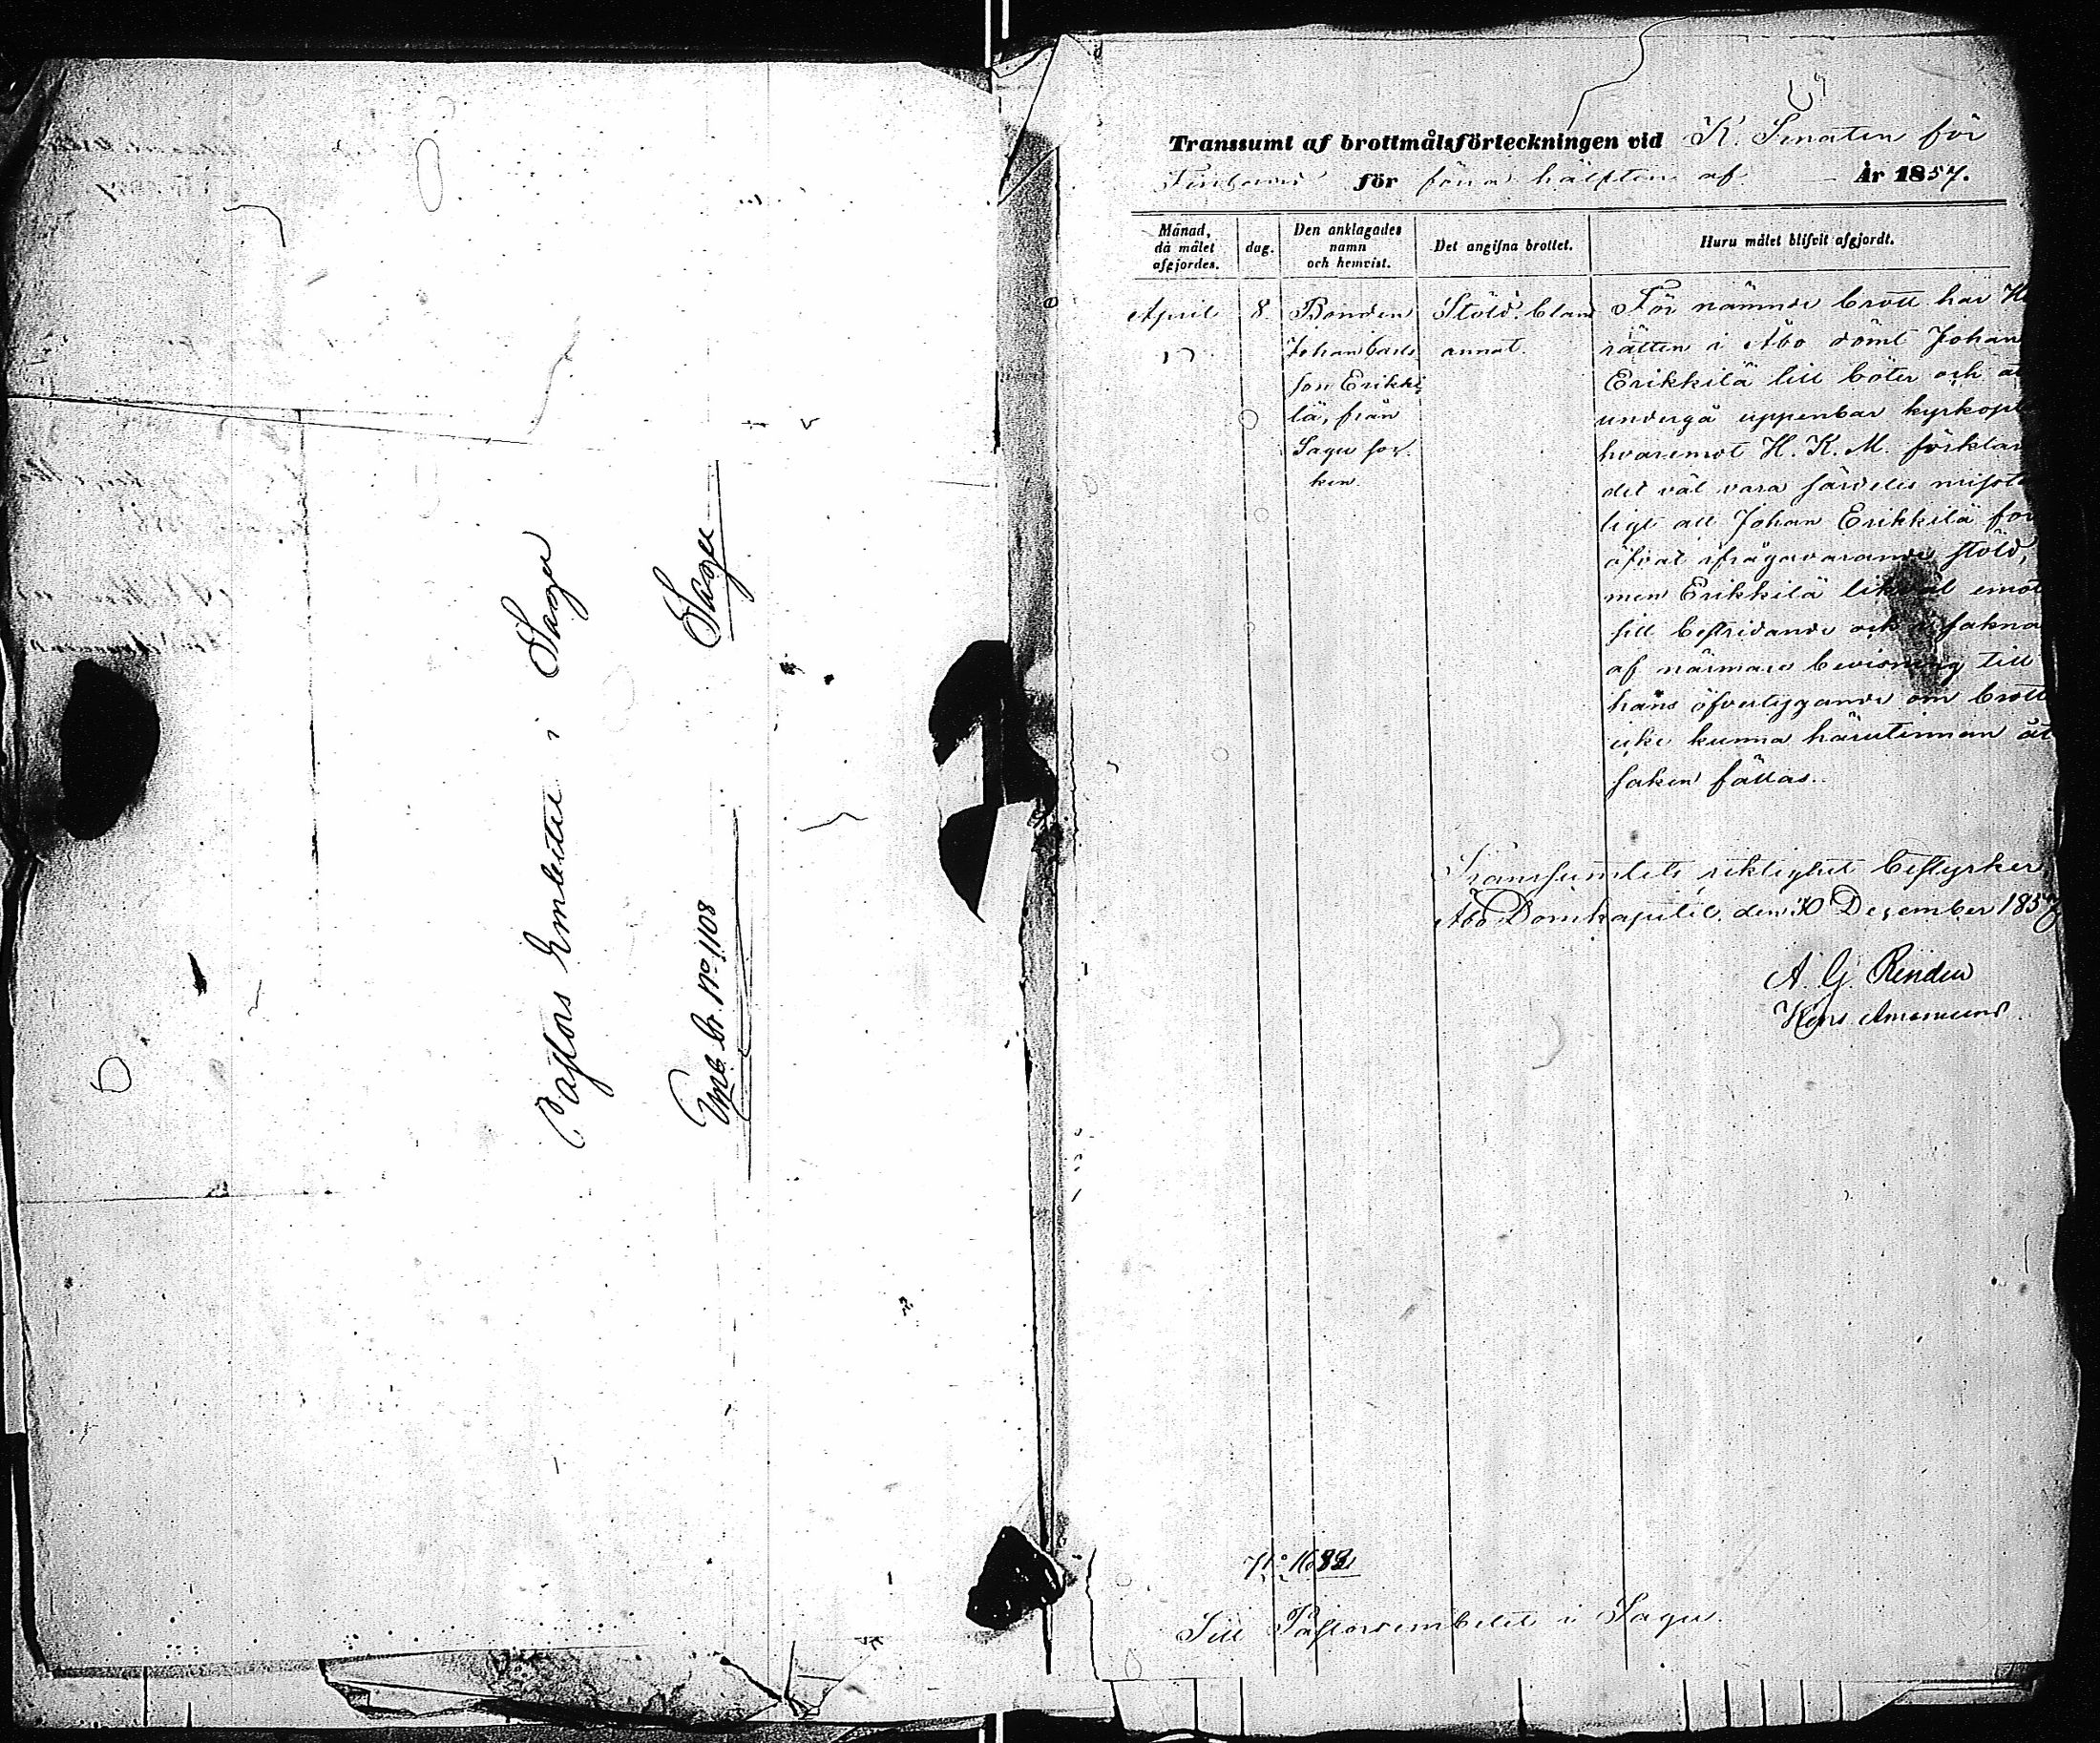 Pastors Embetet i Sagu
Emb. br. No 1108 Sagu
Transsumt af brottmålsförteckningen vid K. Senaten för
Finland för förra hälften af År 1857.
Månad, då målet afgjordes.
dag.
Den anklagades namn och hemvist.
Det angifna brottet.
Huru målet blifvit afgjordt.
April
8.
Bonden
Johan Carls
son Erikki
lä, från
Sagu soc
ken.
Stöld bland
annat.
För nämnde brott har H
rätten i Åbo dömt Johan
Erikkilä till böter och at
undergå uppenbar kyrkopl
hvaremot H. K. M. förklar
det väl vara särdeles misst
ligt att Johan Erikkilä för
öfvat ifrågavarande stöld,
men Erikkilä likväl emot
sitt bestridande och i saknad
af närmare bevisning till
hans öfvertygande om brott
icke kunna härutinnan åt
saken fällas.
Transsumtets riktighet bestyrker,
Åbo Domkapitel, den 10 December 1857
A. G. Renden
Kons Amanuens.
No 1682
Till Pastorsembetet i Sagu.